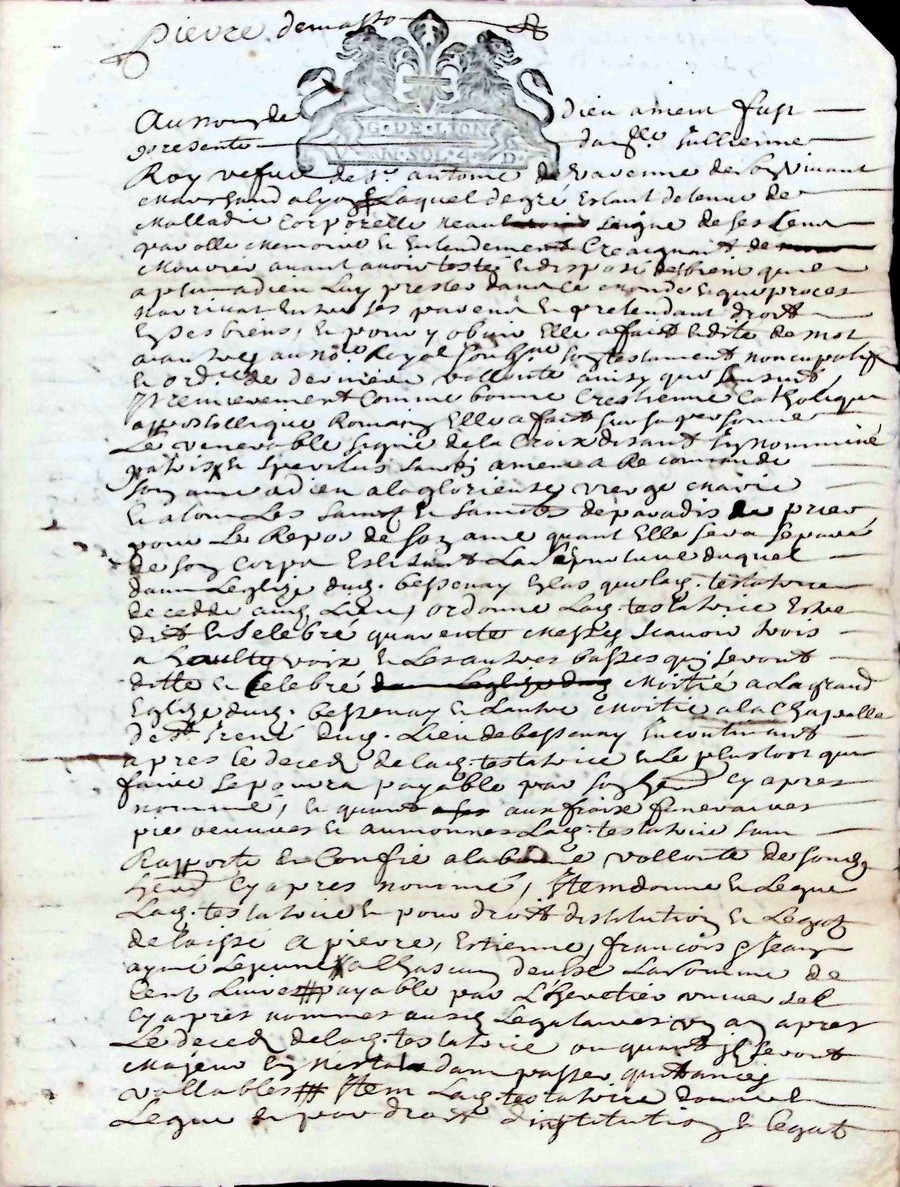 pierre demasso
G. DE. LION
Au nom de dieu amen fust
presente da.lle Jullienne
Roy vefue de Sr antoine de varenne de son vivant
Marchand a lyon Laquel de gré Estant detenue de
Malladie Corporelle neau saigne de ses sens
parolle memoire Et Entendement Creaignant de
Mourir avant avoir testé Et disposé des biens que
a pleu a dieu Luy prester dans le monde Et que proces
narrivat Entre ses parens Et pretendant droit
En ses biens, Et pour y obvier Elle a fait Et dite de mot
a autre, au no.re Royal soubsne son testament noncupatif
Et ord.re de derniere vollonte ainsy que sensuit,
Premierement Comme bonne Crestienne Catholique
appostollique Romaine Elle a fait sur sa personne
Le venerable signe de la Croix disant In nomine
patris Et Speritus Santj amen a Recomande
son ame a dieu a la glorieuse vierge marie
Et a tous Les saints Et saintes de paradis de prier
pour Le Repos de son ame quant Elle sera separée
de son Corps Eslisant La Sepulture duquel
dans Leglise dud. bessenay En Cas que lad. testatrice
decedde aud. Lieu, ordonne Lad. testatrice Estre
dit Et Selebré quarente messes scavoir trois
a haulte voix Et Les autres basses quj seront
ditte Et Celebré dans Leglise dud. Moitié a La grand
Eglise dud. bessenay Et Lautre Moitie a la Chapelle
de St Irené dud. Lieu de bessenay Incontinant
apres le deced de lad. testatrice Et Le plustost que
faire se poura payable par son her. Cy apres
nommé, Et quant a ses aux fraix funeraires
prieres Et aumonnes Lad. testatrice sans
Rapporte Et Confie a la bonne vollonte de sond.
her. Cy apres nommé, Item donne Et Legue
Lad. testatrice Et pour droit distitution Et Legat
delaisse A pierre, Estienne, francois Et Jean
aymé Lejeune a Chascun deulx La somme de
Cent Livres payable par L'heretier universel
Cy apres nommer ausd. Legataires un an apres
Le deced de lad. testatrice ou quant Ils seront
Majeur En Nestat dans passer quittances
vallables Item Lad. testatrice donne Et
Legue Et par droit d'institution Et legat